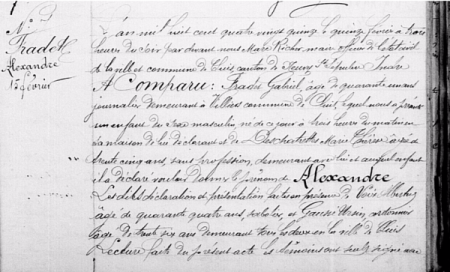 Nº
Fradet
Alexandre
15 février
L'an mil huit cent quatre vingt quinze le quinze février à trois
heures du soir par devant nous Marc Richer, maire officier de l'état civil
de la ville et commune de Cluis canton de Neuvy St Sépulcre Indre
A Comparu: Fradet Gabriel, âgé de quarante un ans
journalier demeurant à commune de Cluis, lequel nous a présenté
un enfant du sexe masculin né de ce jour à trois heures du matin en
la maison de lui déclarant et de Marie Thérèse âgée de
trente cinq ans, sans profession, demeurant avec lui et auquel enfant
il a déclaré vouloir donner le prénom de Alexandre
Les dites déclaration et présentation faites en présence de
âgé de quarante quatre ans et Ursin, cordonnier
âgé de trente six ans demeurant tous les deux en la ville de Cluis
Lecture faite du présent acte les témoins ont seuls signé avec